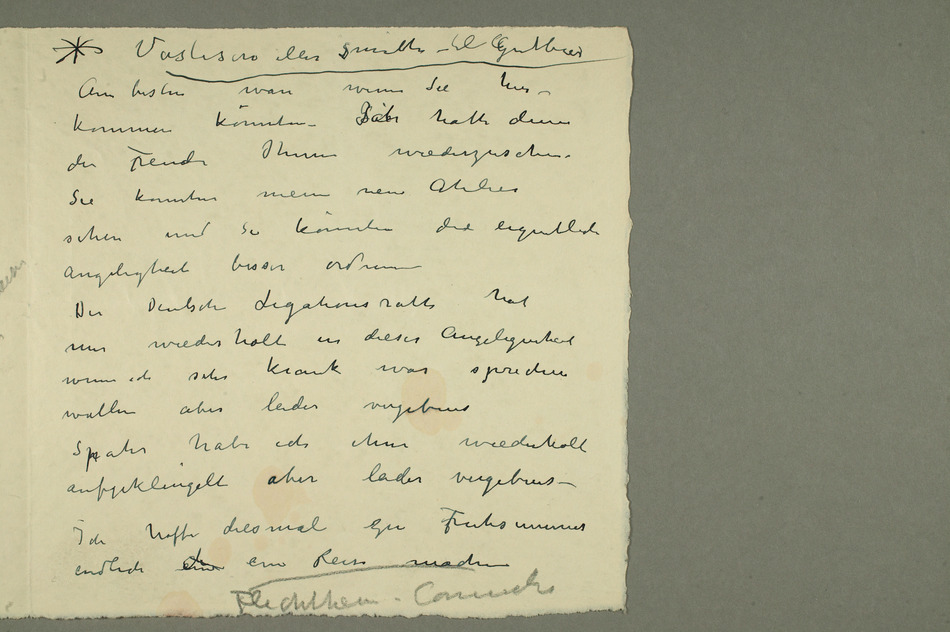 Am besten wäre wenn Sie her-
kommen könnten. hatte dann
die Freude Ihnen wiederzusehen.
Sie konnten mein neu Atelier
sehen und Sie könnten die eigentliche
Angeligheit besser ordnen
Der Deutsche Legationsrath hat
mir wiederholt in dieser Angelegenheit
wenn ich sehr krank war sprechen
wollen aber leider vergebens
Später habe ich ihm wiederholt
aufgeklingelt aber leider vergebens –
Ich hoffe diesmal Frühsummer
endlich eine Reise machen
Flechtheim - Commeter